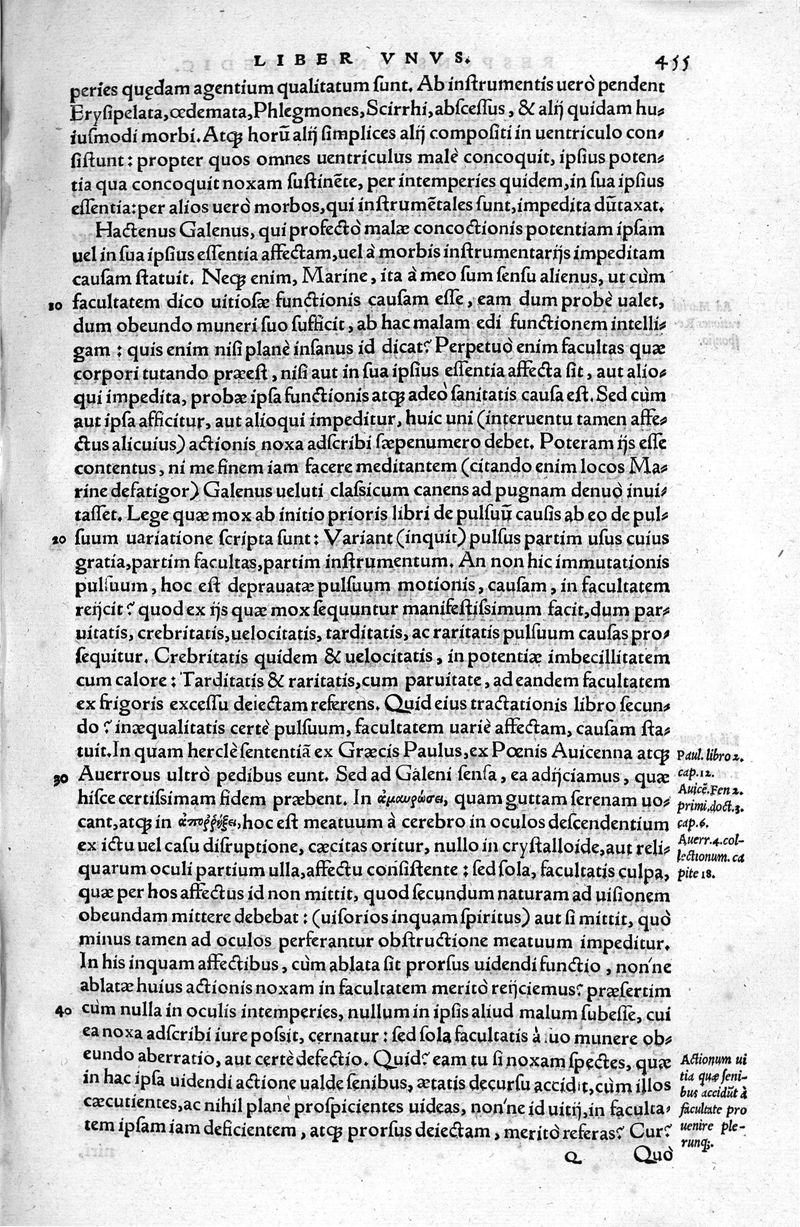 LIBER VNVS. 455
peries quędam agentium qualitatum sunt. Ab instrumentis uerò pendent
Erysipelata, œdemata, Phlegmones, Scirrhi, abscessus, & alij quidam hu-
iusmodi morbi. Atq; horū alij simplices alij compositi in uentriculo con-
sistunt: propter quos omnes uentriculus malè concoquit, ipsius poten-
tia qua concoquit noxam sustinēte, per intemperies quidem, in sua ipsius
essentia: per alios uerò morbos, qui instrumētales sunt, impedita dūtaxat.
Hactenus Galenus, qui profectò malæ concoctionis potentiam ipsam
uel in sua ipsius essentia affectam, uel à morbis instrumentarijs impeditam
causam statuit. Neq; enim, Marine, ita à meo sum sensu alienus, ut cùm
10 facultatem dico uitiosæ functionis causam esse, eam dum probè ualet,
dum obeundo muneri suo sufficit, ab hac malam edi functionem intelli-
gam: quis enim nisi planè insanus id dicat? Perpetuò enim facultas quæ
corpori tutando præest, nisi aut in sua ipsius essentia affecta sit, aut alio-
qui impedita, probæ ipsa functionis atq; adeò sanitatis causa est. Sed cùm
aut ipsa afficitur, aut alioqui impeditur, huic uni (interuentu tamen affe-
ctus alicuius) actionis noxa adscribi sæpenumero debet. Poteram ijs esse
contentus, ni me finem iam facere meditantem (citando enim locos Ma-
rine defatigor) Galenus ueluti classicum canens ad pugnam denuò inui-
tasset. Lege quæ mox ab initio prioris libri de pulsuū causis ab eo de pul-
20 suum uariatione scripta sunt: Variant (inquit) pulsus partim usus cuius
gratia, partim facultas, partim instrumentum. An non hic immutationis
pulsuum, hoc est deprauatæ pulsuum motionis, causam, in facultatem
reijcit? quod ex ijs quæ mox sequuntur manifestissimum facit, dum par-
uitatis, crebritatis, uelocitatis, tarditatis, ac raritatis pulsuum causas pro-
sequitur. Crebritatis quidem & uelocitatis, in potentiæ imbecillitatem
cum calore: Tarditatis & raritatis, cum paruitate, ad eandem facultatem
ex frigoris excessu deiectam referens. Quid eius tractationis libro secun-
do? inæqualitatis certè pulsuum, facultatem uariè affectam, causam sta-
tuit. In quam herclè sententiā ex Græcis Paulus, ex Pœnis Auicenna atq;
30 Auerrous ultrò pedibus eunt. Sed ad Galeni sensa, ea adijciamus, quæ
hisce certissimam fidem præbent. In ἀμαυρώσει, quam guttam serenam uo-
cant, atq; in ἀπορρήξει, hoc est meatuum à cerebro in oculos descendentium
ex ictu uel casu disruptione, cæcitas oritur, nullo in crystalloide, aut reli-
quarum oculi partium ulla, affectu consistente: sed sola, facultatis culpa,
quæ per hos affectus id non mittit, quod secundum naturam ad uisionem
obeundam mittere debebat: (uisorios inquam spiritus) aut si mittit, quò
minus tamen ad oculos perferantur obstructione meatuum impeditur.
In his inquam affectibus, cùm ablata sit prorsus uidendi functio, non'ne
ablatæ huius actionis noxam in facultatem meritò reijciemus? præsertim
40 cùm nulla in oculis intemperies, nullum in ipsis aliud malum subesse, cui
ea noxa adscribi iure possit, cernatur: sed sola facultatis à suo munere ob-
eundo aberratio, aut certè defectio. Quid? eam tu si noxam spectes, quæ
in hac ipsa uidendi actione ualde senibus, ætatis decursu accidit, cùm illos
cæcutientes, ac nihil planè prospicientes uideas, non'ne id uitij, in faculta-
tem ipsam iam deficientem, atq; prorsus deiectam, meritò referas? Cur?
Q Quò
Paul. libro 2.
cap. 12.
Auicē. Fen 2.
primi, doct. 3.
cap. 6.
Auerr. 4. col-
lectionum. ca
pite 18.
Actionum ui
tia quæ seni-
bus accidūt à
facultate pro
uenire ple-
runq;.